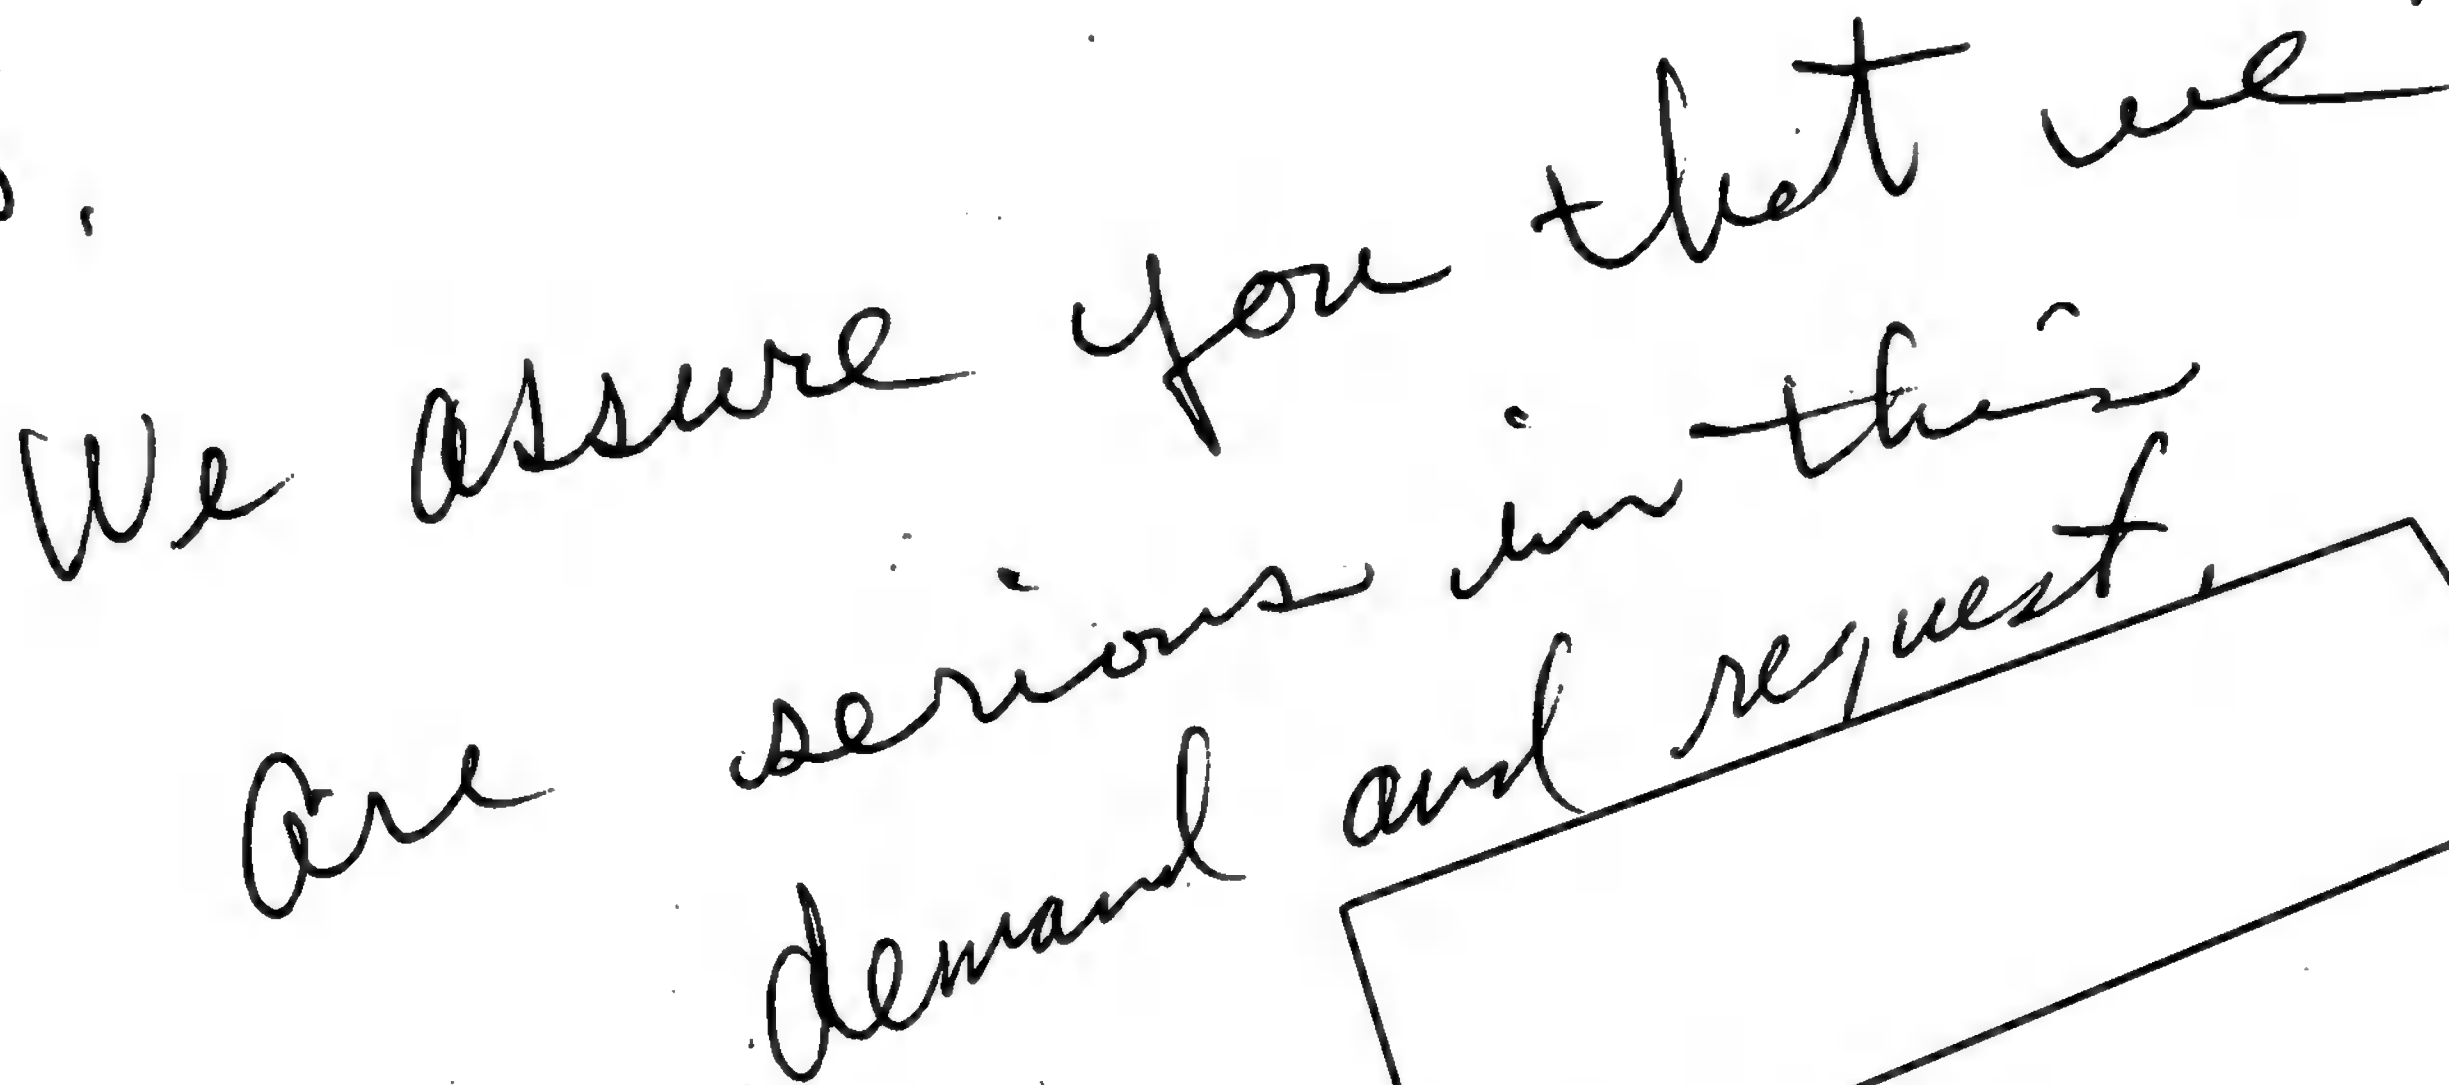 We assure you that we
are serious in this
demand and request.